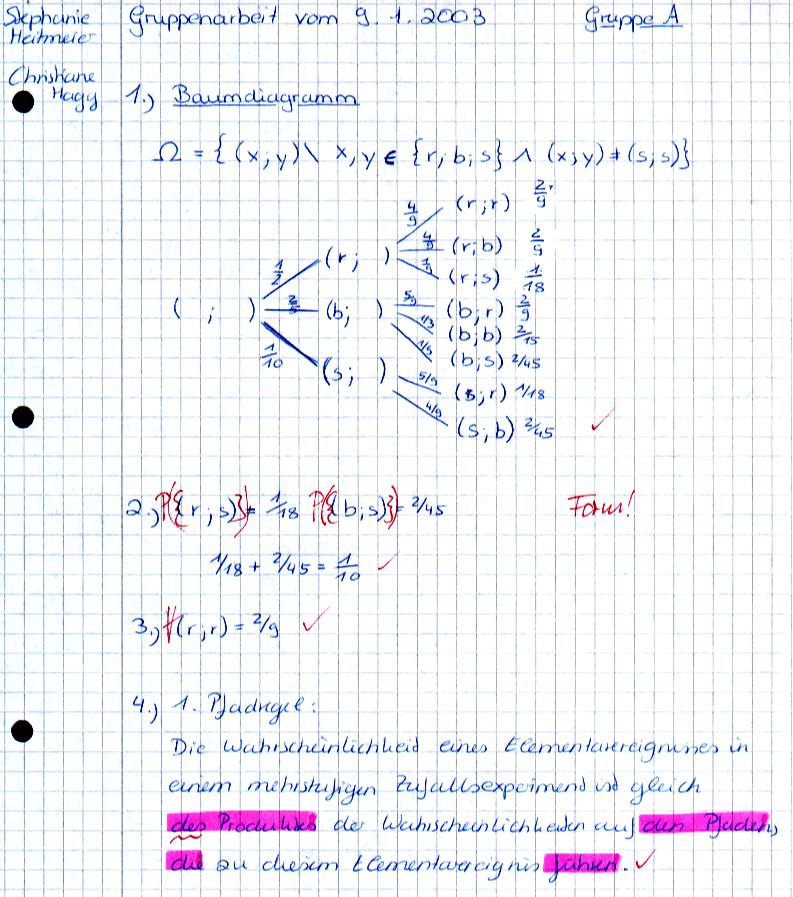 Stephanie Heitmeier
Gruppenarbeit vom 9.1.2003
Gruppe A
Christiane Hagg
1.) Baumdiagramm
Ω = { (x;y) \ x,y ∈ {r;b;s} ∧ (x;y) ≠ (s;s)}
4/9 (r;r) 2/9
1/2 (r; ) 4/9 (r;b) 2/9
1/9 (r;s) 1/18
( ; ) 2/5 (b; ) 5/9 (b;r) 2/9
1/3 (b;b) 2/15
1/9 (b;s) 2/45
1/10 (s; ) 5/9 (s;r) 1/18
4/9 (s;b) 2/45 ✓
2.) P({(r;s)}) = 1/18 P({(b;s)}) = 2/45 Form!
1/18 + 2/45 = 1/10 ✓
3.) P(r;r) = 2/9 ✓
4.) 1. Pfadregel:
Die Wahrscheinlichkeid eines Elementarereignisses in
einem mehrstufigen Zufallsexperimend isd gleich
des Produktes der Wahrscheinlichkeiden auf den Pfaden,
die zu diesem Elementarereignis führen. ✓